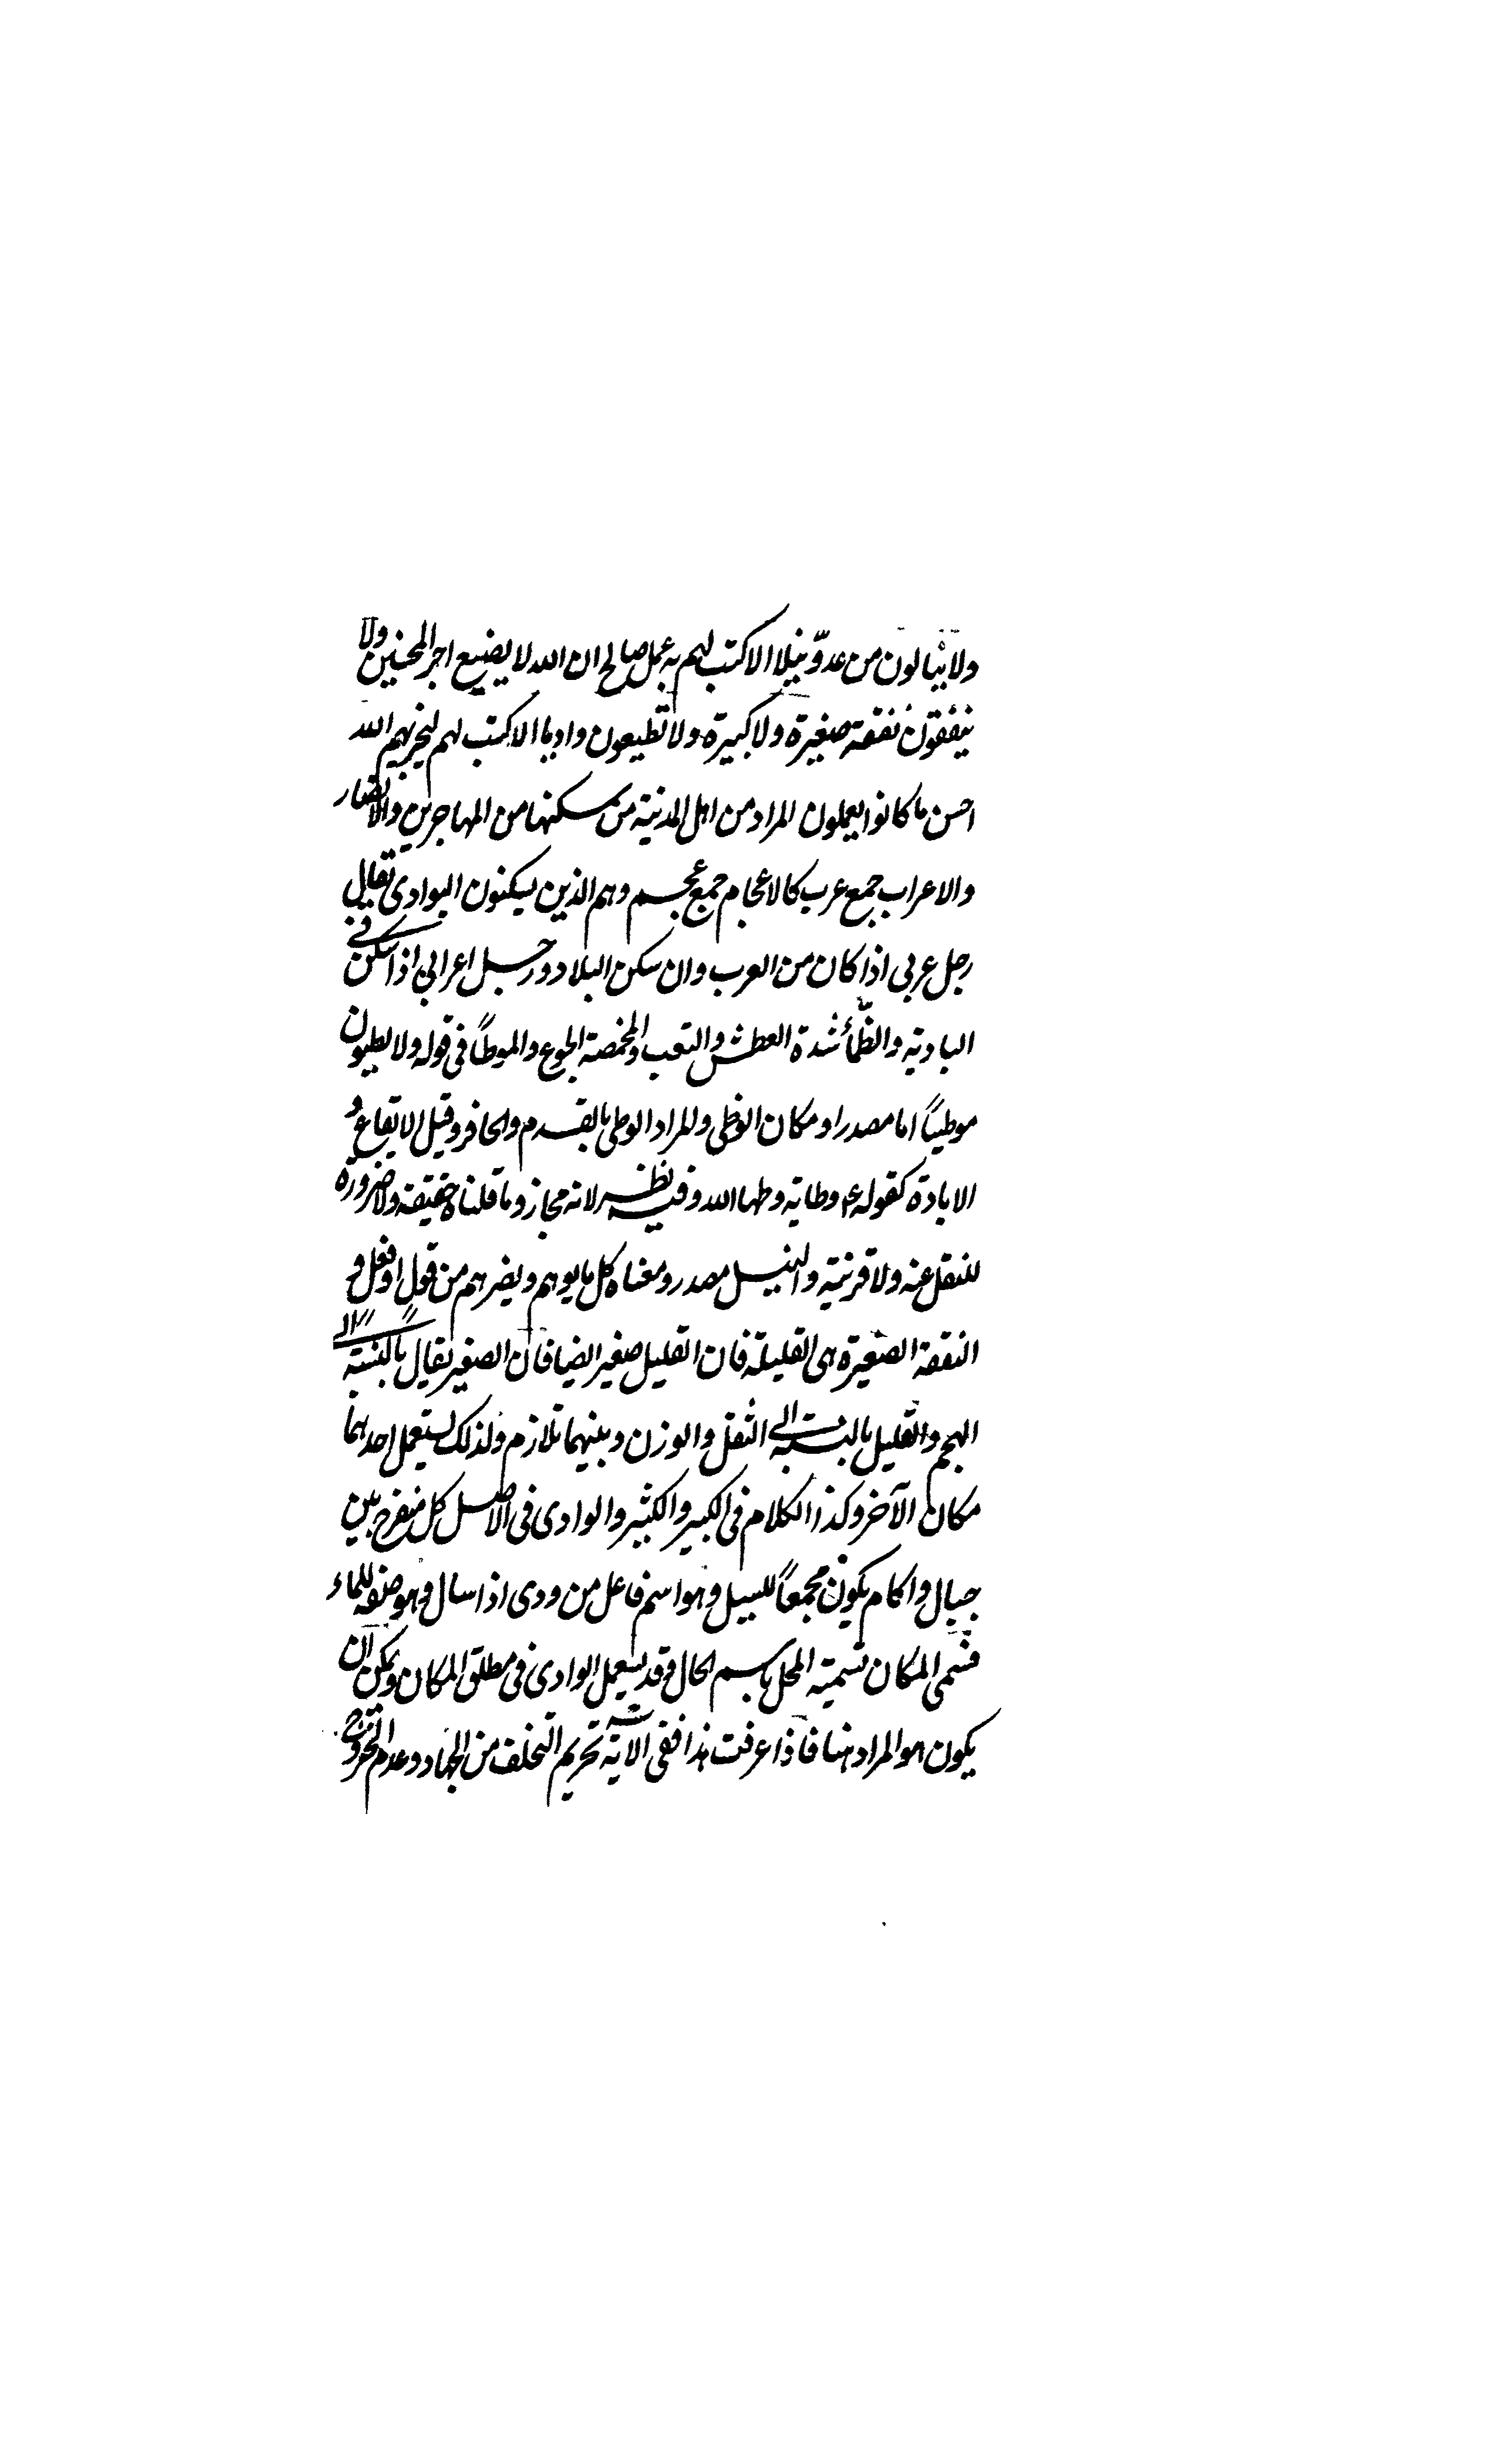 ولا ينالون من عدوّ نيلا الا كتب لهم به عمل صالح ان الله لا يضيع اجر المحسنين ولا
ينفقون نفقة صغيرة ولا كبيرة ولا تطيعون واديا الا كتب لهم ليجزيهم الله
احسن ما كانوا يعملون المراد من اهل المدينة من سكنها من المهاجرين والانصار
والاعراب جمع عرب كالاعجام جمع عجم وهم الذين يسكنون البوادى يقال
رجل عربى اذا كان من العرب وان سكن البلاد ورجل اعرابى اذا سكن فى
البادية والظمأ شدة العطش والتعب والمخمصة الجوع والموطأ فى قوله ولا يطيون
موطيًا اما مصدر او مكان الوطى والمراد الوطى بالقدم والحافر وقيل الايقاع و
الابادة كقوله ع وطاية وطها الله وفيه نظر لانه مجاز وما قلناه حقيقة ولا ضرورة
للنقل عنه ولا قرينة والنيل مصدر ومعناه كل ما يوهم ويضرهم من قول او فعل و
النفقة الصغيرة هى القليلة فان القليل صغير ايضا فان الصغير يقال بالنسبة الى
الهجم والقليل بالنسبة الى الثقل والوزن وبينهما تلازم ولذلك يستعمل احدهما
مكان الآخر وكذا الكلام فى الكبير والكثير والوادى فى الاصل كل منفرج بين
جبال واكام يكون مجمعاً للسيل وهو اسم فاعل من ودى اذا سال وهو صفة للماء
فسمى المكان تسمية المحل باسم الحال وقد يستعمل الوادى فى مطلق المكان ويمكن ان
يكون هو المراد هنا فاذا عرفت هذا ففى الآية تحريم التخلف من الجهاد وعدم الخروج